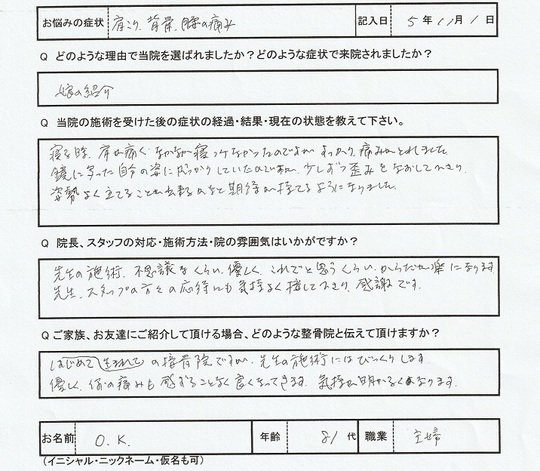 お悩みの症状 肩こり、背骨、腰の痛み 記入日 5年11月1日
Q どのような理由で当院を選ばれましたか？どのような症状で来院されましたか？
嫁の紹介
Q 当院の施術を受けた後の症状の経過・結果・現在の状態を教えて下さい。
寝る時、肩が痛くなかなか寝つけなかったのですが すっかり 痛みがとれました
鏡に写った自分の姿にがっかりしていたのですが、少しずつ歪みをなおして下さり
姿勢よく立てることが出来るのだと期待が持てるようになりました。
Q 院長、スタッフの対応・施術方法・院の雰囲気はいかがですか？
先生の施術、不思議なくらい、優しく、これでと思うくらい、からだが楽になります
先生、スタッフの方々の応待にも気持よく接して下さり、感謝です。
Q ご家族、お友達にご紹介して頂ける場合、どのような整骨院と伝えて頂けますか？
はじめて 生まれて の接骨院ですが、先生の施術にはびっくりします
優しく、何の痛みも感ずることなく良くなってきます、気持が明かるくなります。
お名前 O.K. 年齢 81代 職業 主婦
(イニシャル・ニックネーム・仮名も可)